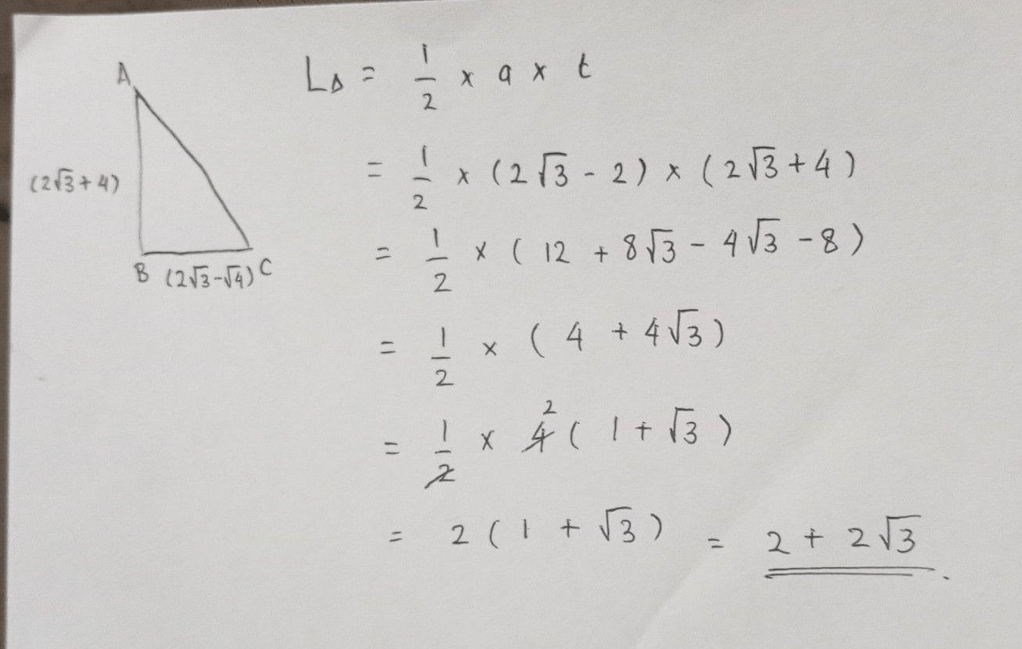 A
(2√3+4)
B (2√3-√4) C
L△ = 1/2 x a x t
= 1/2 x (2√3 - 2) x (2√3 + 4)
= 1/2 x (12 + 8√3 - 4√3 - 8)
= 1/2 x (4 + 4√3)
= 1/2 x 4 2 (1 + √3)
= 2 (1 + √3) = 2 + 2√3.